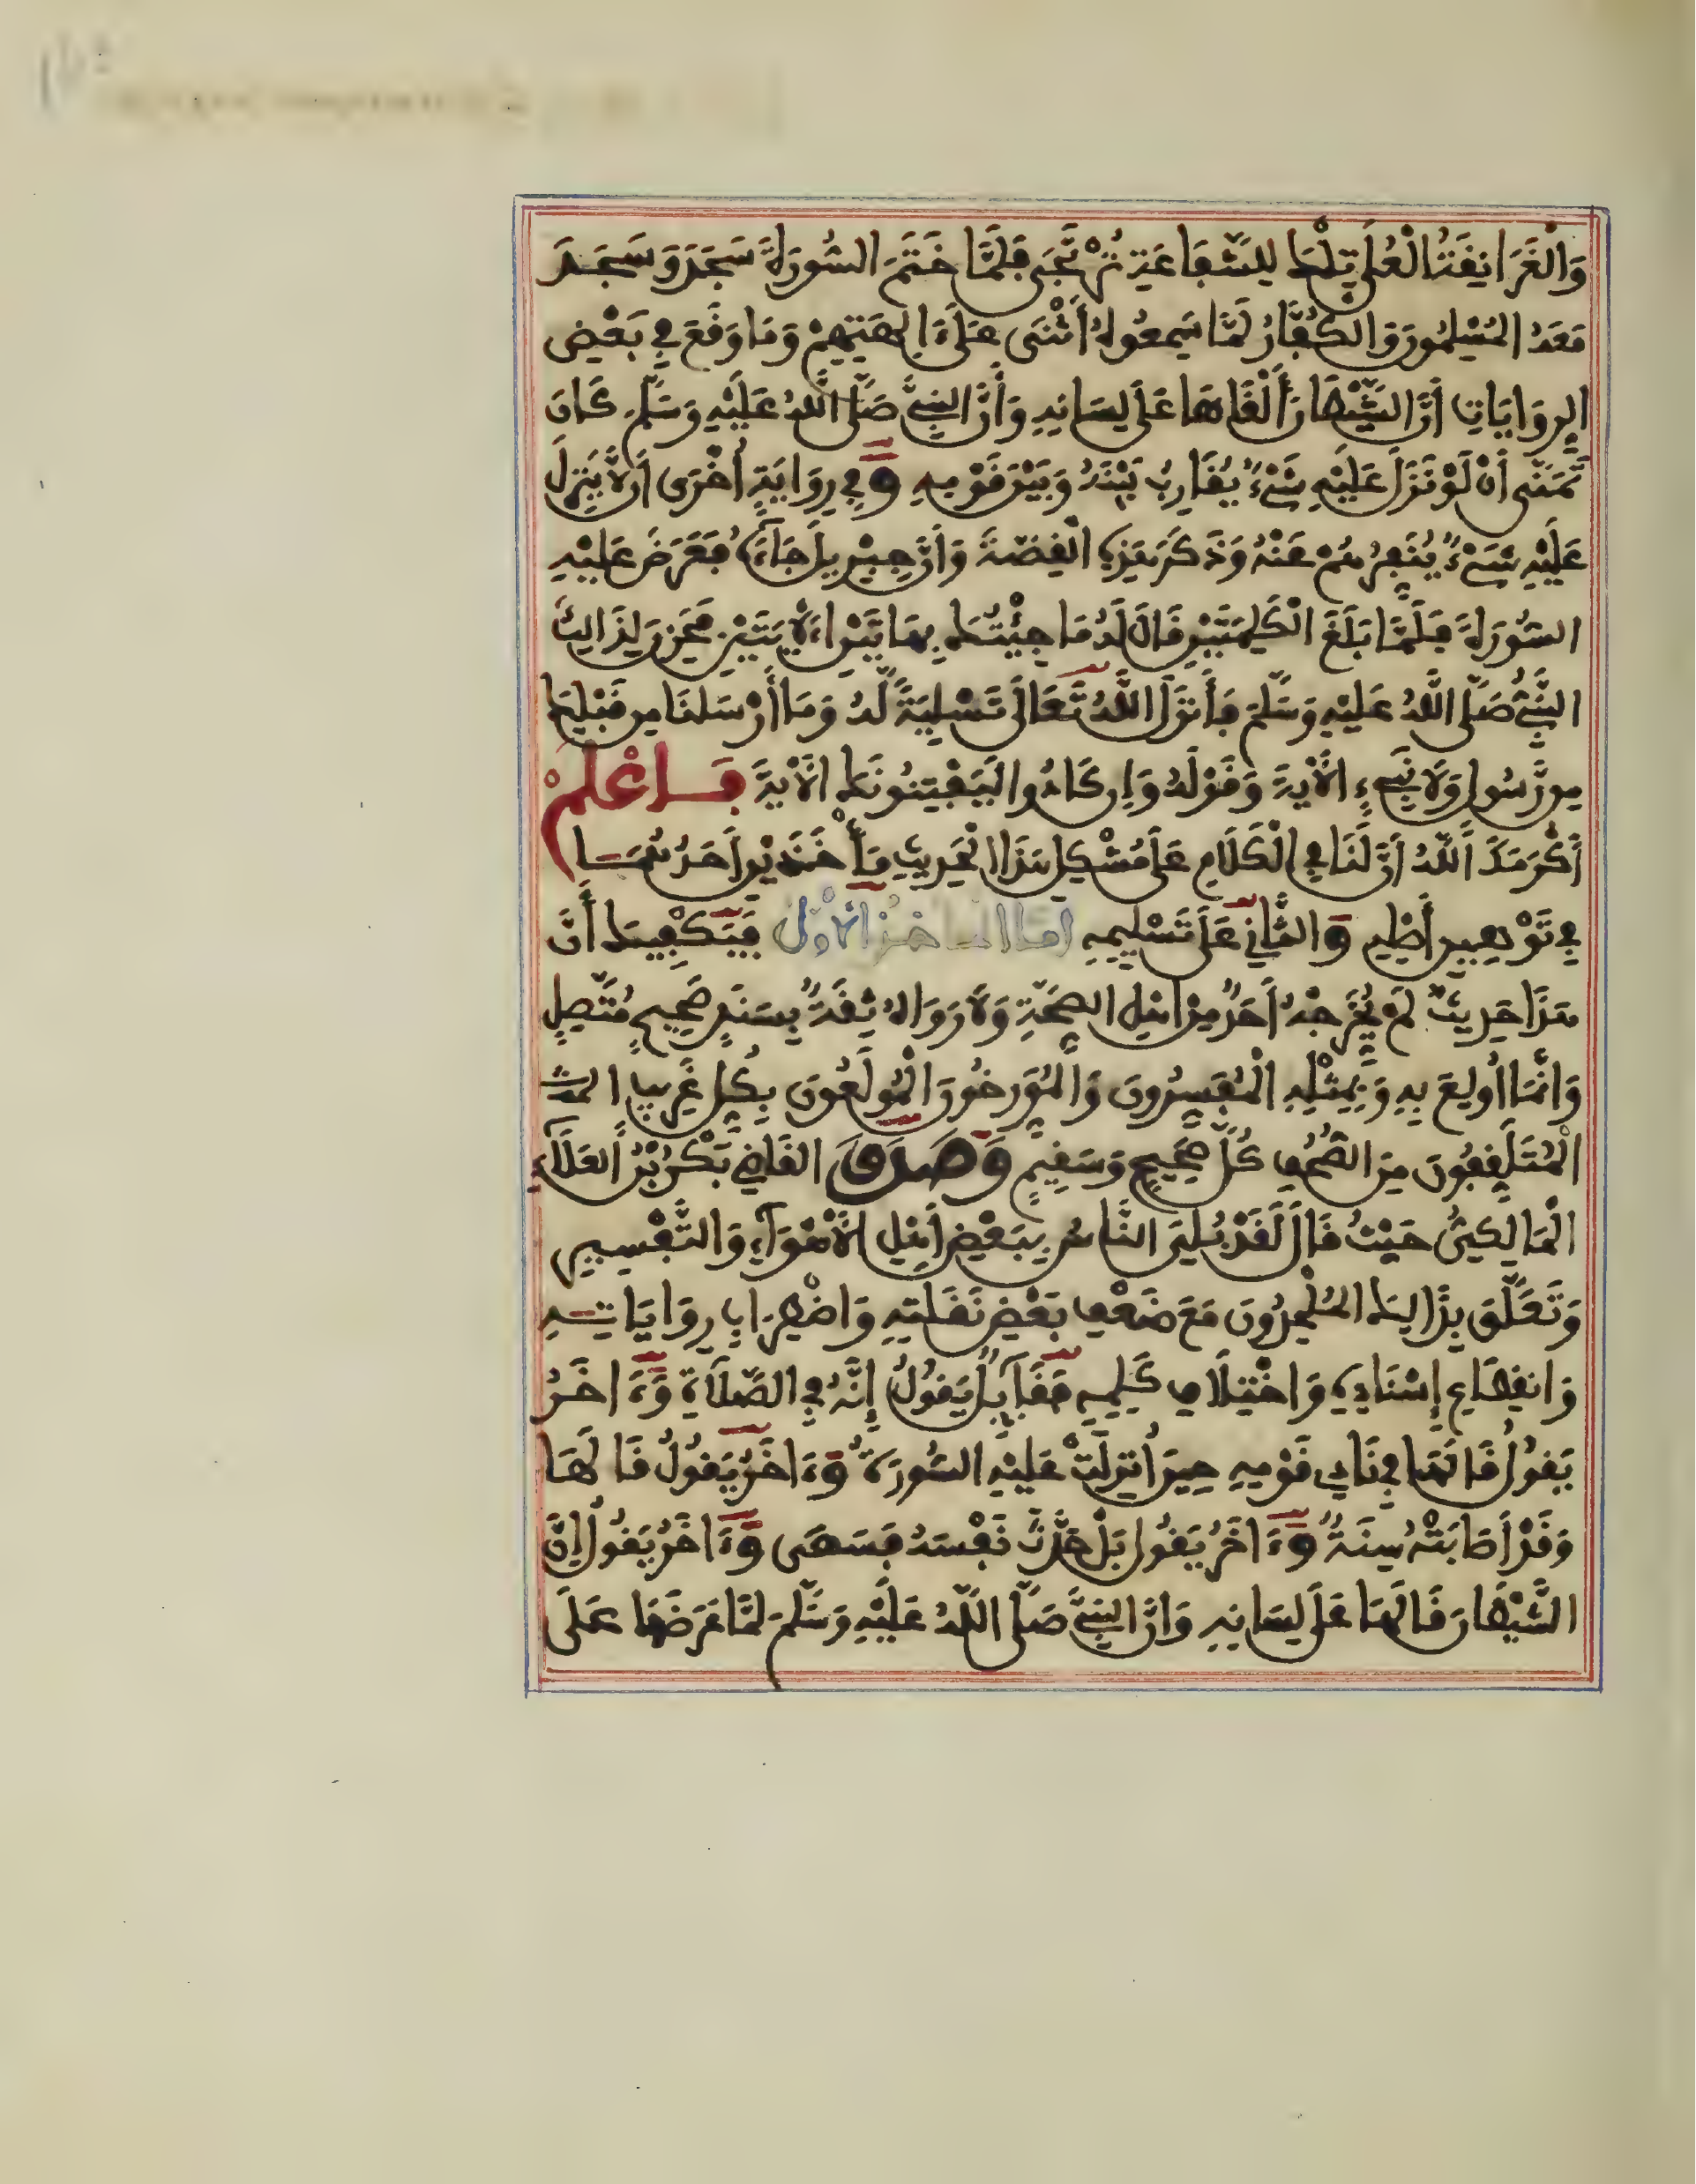 وَالْغَرَانِقَةُ الْعُلَى تِلْكَ لِلشَّفَاعَةِ تُرْتَجَى فَلَمَّا خَتَمَ السُّورَةَ سَجَدَ وَسَجَدَ
مَعَهُ الْمُسْلِمُونَ وَالْكُفَّارُ لَمَّا سَمِعُوهُ أَثْنَى عَلَى ءَالِهَتِهِمْ وَمَا وَقَعَ فِي بَعْضِ
الرِّوَايَاتِ أَنَّ الشَّيْطَانَ أَلْقَاهَا عَلَى لِسَانِهِ وَأَنَّ النَّبِيَّ صَلَّى اللَّهُ عَلَيْهِ وَسَلَّمَ كَانَ
تَمَنَّى أَنْ لَوْ نَزَلَ عَلَيْهِ شَيْءٌ يُقَارِبُ بَيْنَهُ وَبَيْنَ قَوْمِهِ وَفِي رِوَايَةٍ أُخْرَى أَلَّا يَنْزِلَ
عَلَيْهِ شَيْءٌ يُنَفِّرُهُمْ عَنْهُ وَذَكَرَ هَذِهِ الْقِصَّةَ وَأَنَّ جِبْرِيلَ جَاءَهُ فَعَرَضَ عَلَيْهِ
السُّورَةَ فَلَمَّا بَلَغَ الْكَلِمَتَيْنِ قَالَ لَهُ مَا جِئْتُكَ بِهَاتَيْنِ الْآيَتَيْنِ فَحَزِنَ لِذَالِكَ
النَّبِيُّ صَلَّى اللَّهُ عَلَيْهِ وَسَلَّمَ فَأَنْزَلَ اللَّهُ تَعَالَى تَسْلِيَةً لَهُ وَمَا أَرْسَلْنَا مِن قَبْلِكَ
مِن رَّسُولٍ وَلَا نَبِيٍّ الْآيَةَ وَقَوْلَهُ وَإِن كَادُوا لَيَفْتِنُونَكَ الْآيَةَ فَاعْلَمْ
أَكْرَمَكَ اللَّهُ أَنَّ لَنَا فِي الْكَلَامِ عَلَى مُشْكِلِ هَذَا الْحَدِيثِ مَأْخَذَيْنِ أَحَدُهُمَا
فِي تَوْهِينِ أَصْلِهِ وَالثَّانِي عَلَى تَسْلِيمِهِ أَمَّا الْمَأْخَذُ الْأَوَّلُ فَيَكْفِيكَ أَنَّ
هَذَا حَدِيثٌ لَمْ يُخَرِّجْهُ أَحَدٌ مِنْ أَهْلِ الصِّحَّةِ وَلَا رَوَاهُ ثِقَةٌ بِسَنَدٍ صَحِيحٍ مُتَّصِلٍ
وَإِنَّمَا أُولِعَ بِهِ وَبِمِثْلِهِ الْمُفَسِّرُونَ وَالْمُؤَرِّخُونَ الْمُولَعُونَ بِكُلِّ غَرِيبٍ
الْمُتَلَقِّفُونَ مِنَ الصُّحُفِ كُلَّ صَحِيحٍ وَسَقِيمٍ وَصَدَقَ الْقَاضِي بَكْرُ بْنُ الْعَلَاءِ
الْمَالِكِيُّ حَيْثُ قَالَ لَقَدْ بُلِيَ النَّاسُ بِبَعْضِ أَهْلِ الْأَهْوَاءِ وَالتَّفْسِيرِ
وَتَعَلَّقَ بِذَالِكَ الْمُلْحِدُونَ مَعَ ضَعْفِ بَعْضِ نَقَلَتِهِ وَاضْطِرَابِ رِوَايَاتِهِ
وَانْقِطَاعِ إِسْنَادِهِ وَاخْتِلَافِ كَلِمِهِ فَقَائِلٌ يَقُولُ إِنَّهُ فِي الصَّلَاةِ وَءَاخَرُ
يَقُولُ قَالَهَا فِي نَادِي قَوْمِهِ حِينَ أُنْزِلَتْ عَلَيْهِ السُّورَةُ وَءَاخَرُ يَقُولُ قَالَهَا
وَقَدْ أَصَابَتْهُ سِنَةٌ وَءَاخَرُ يَقُولُ بَلْ حَدَّثَ نَفْسَهُ فَسَهَى وَءَاخَرُ يَقُولُ إِنَّ
الشَّيْطَانَ قَالَهَا عَلَى لِسَانِهِ وَأَنَّ النَّبِيَّ صَلَّى اللَّهُ عَلَيْهِ وَسَلَّمَ لَمَّا عَرَضَهَا عَلَى